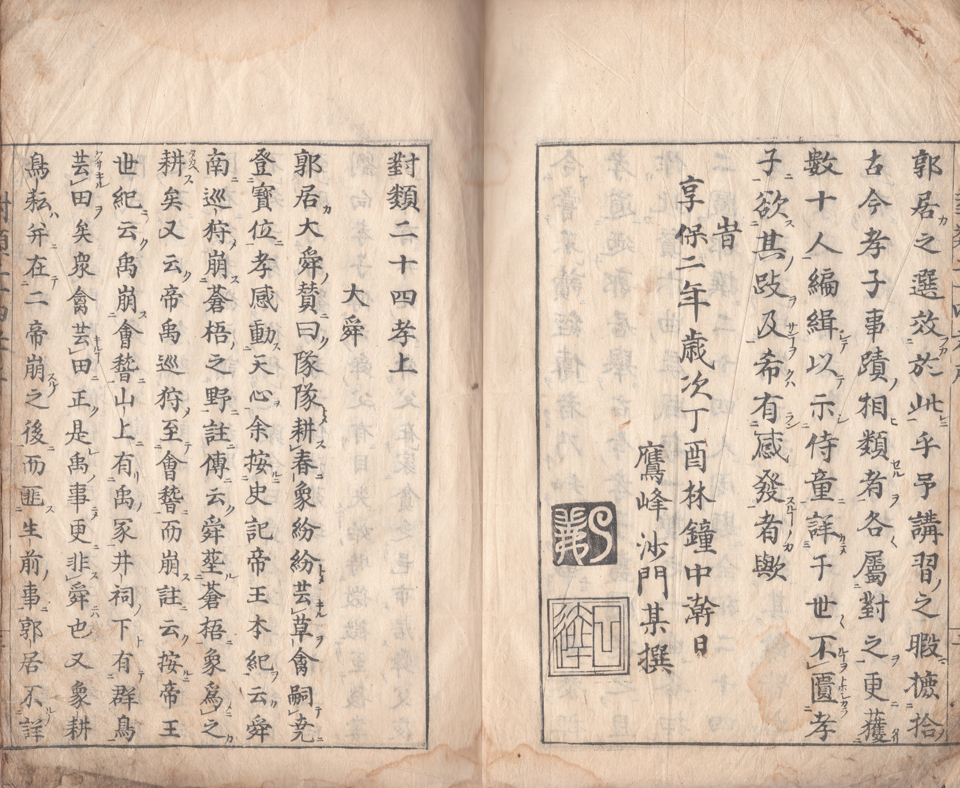 郭居之選效於此乎予講習之暇摭拾
古今孝子事蹟相類者各屬對之更獲
數十人編緝以示侍童詳于世不匱孝
子欲其跂及希有感發者歟
旹
享保二年歳次丁酉林鐘中澣日
鷹峰沙門某撰
對類二十四孝上
大舜
郭居大舜賛曰隊隊耕春象紛紛芸草禽嗣尭
登寶位孝感動天心余按史記帝王本紀云舜
南巡狩崩蒼梧之野註傳云舜塟蒼梧象爲之
耕矣又云帝禹巡狩至會嵆而崩註云按帝王
世紀云禹崩會嵆山上有禹冢井祠下有群鳥
芸田矣衆禽芸田正是禹事更非舜也又象耕
鳥耘并在二帝崩之後而匪生前事郭居不詳